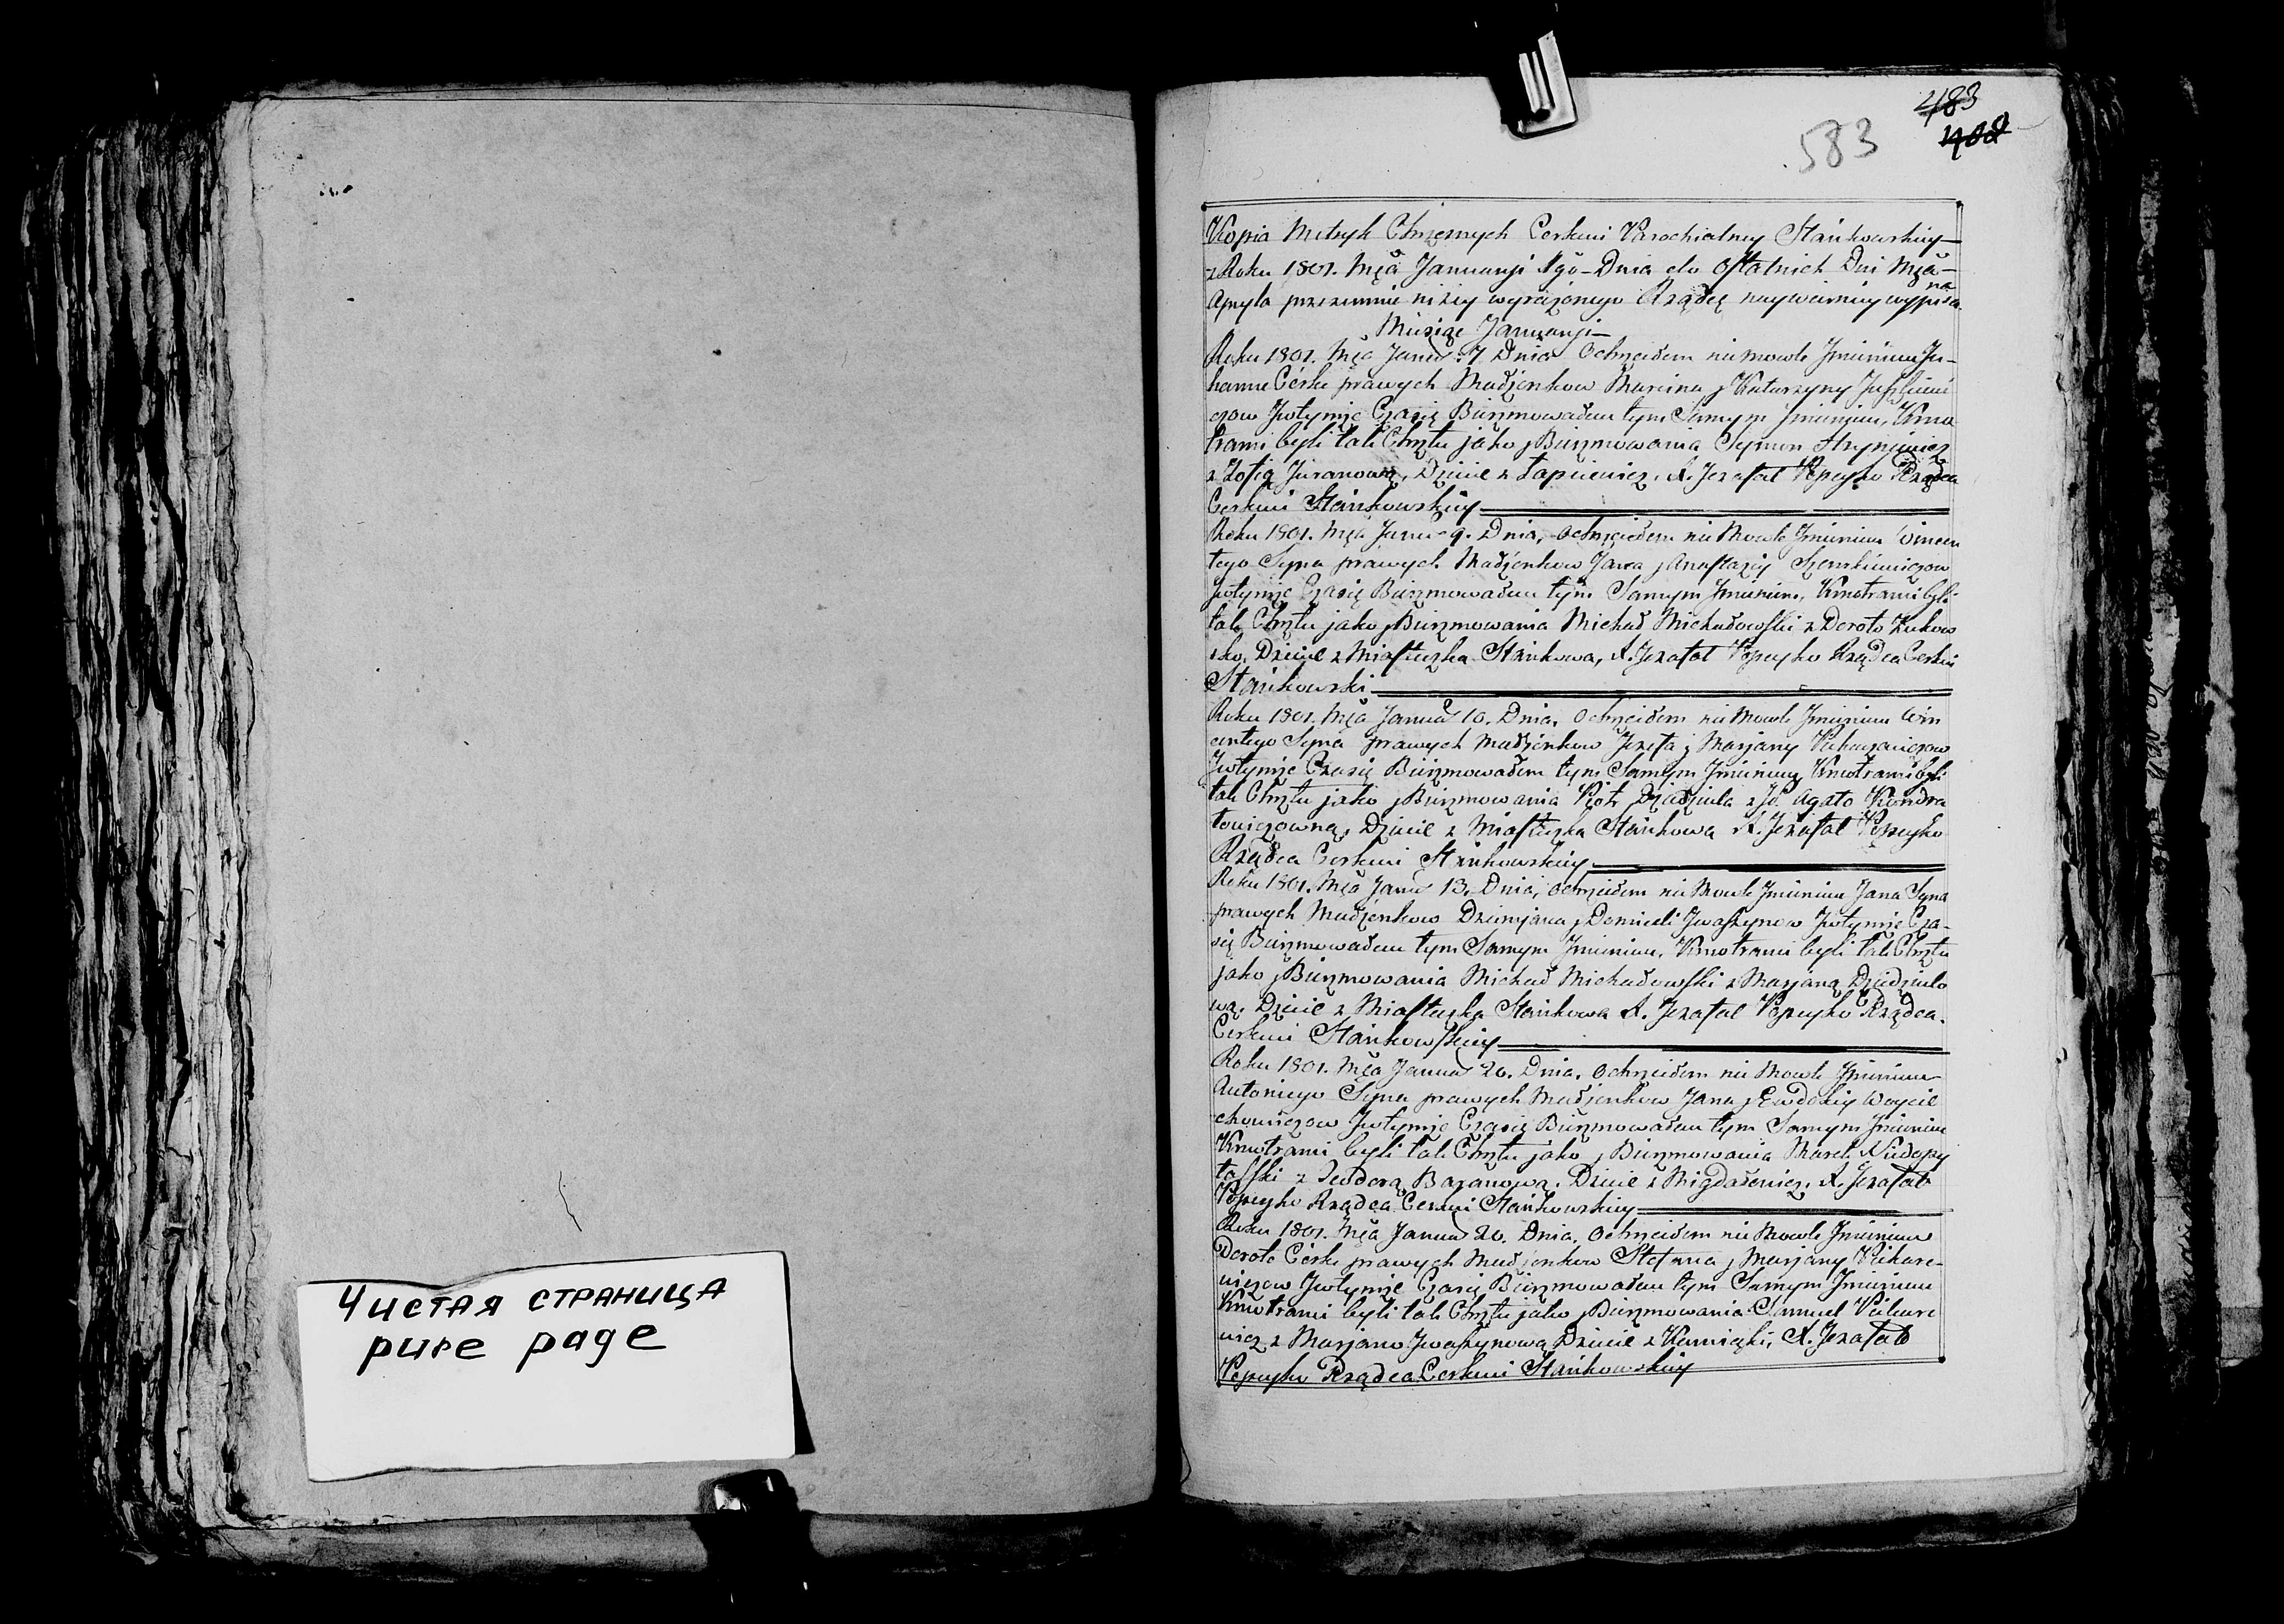 483
408
583
Чистая страница
pure page
Kopia Metryk Chrzesnych Cerkwi Parochialney Stańkowskiey
z Roku 1801. Mca Januarji 1go Dnia do Ostatnich Dni Mca
Apryla przezemnie niżey wyrażonego Rządcę naywierniey wypisana
Miesiąc Januarji
Roku 1801. Mca Janu: 7 Dnia Ochrzciłem niemowle Imieniem Ju-
hannę Córkę prawych Małżenkow Marcina j Katarzyny
czow Jwtymże Czasię Bierzmowałem tym Samym Imieniem, Kmo
trami byli tak Chrztu jako j Bierzmowania Symon
z Zofią Juranową, Dziecie z Łapciewicz. X. Jozafat Pepeyko Rządca
Cerkwi Stańkowskiey
Roku 1801. Mca Janu 9. Dnia, Ochrzciłem niemowle Imieniem Wincen
tego Syna prawych Małżenkow Jana j Anastazij
Jwtymże Czasię Bierzmowałem tym Samym Imieniem, Kmotrami byli
tak Chrztu jako j Bierzmowania Michał Michałowski z Doroto Żukow
sko, Dziecie z Miasteczka Stańkowa, X. Jozafat Pepeyko Rządca Cerkwi
Stańkowski
Roku 1801. Mca Janua 10. Dnia. Ochrzciłem niemowle Imieniem Win
centego Syna prawych Małżenkow Jozefa j Marjany
Jwtymże Czasię Bierzmowałem tym Samym Imieniem Kmotrami byli
tak Chrztu jako j Bierzmowania Piotr Dziedziula z Agato Kondra
towiczowną, Dziecie z Miasteczka Stańkowa X. Jozafat Pepeyko
Rządca Cerkwi Stańkowskiey
Roku 1801. Mca Janu 13. Dnia, Ochrzciłem niemowle Imieniem Jana Syna
prawych Małżenkow Dziemjana j Domiceli Jwaszynow Jwtymże Cza-
się Bierzmowałem tym Samym Imieniem, Kmotrami byli tak Chrztu
jako j Bierzmowania Michał Michałowski z Marjaną Dziedziulo
wą. Dziecie z Miasteczka Stańkowa X. Jozafat Pepeyko Rządca
Cerkwi Stańkowskiey
Roku 1801. Mca Janua 20. Dnia. Ochrzciłem niemowle Imieniem
Antoniego Syna prawych Małżenkow Jana j Ewdokij Woycie
chowiczow Jwtymże Czasię Bierzmowałem tym Samym Imieniem
Kmotrami byli tak Chrztu jako j Bierzmowania Marek Niedopy
talski z Teodorą Bazanową. Dziecie z Migdałowicz. X. Jozafat
Pepeyko Rządca Cerkwi Stańkowskiey
Roku 1801. Mca Janua 20. Dnia. Ochrzciłem niemowle Imieniem
Doroto Córkę prawych Małżenkow Stefana j Marjany
Jwtymże Czasię Bierzmowałem tym Samym Imieniem
Kmotrami byli tak Chrztu jako j Bierzmowania Samuel
z Marjano Jwaszynową Dziecie z X. Jozafat
Pepeyko Rządca Cerkwi Stańkowskiey